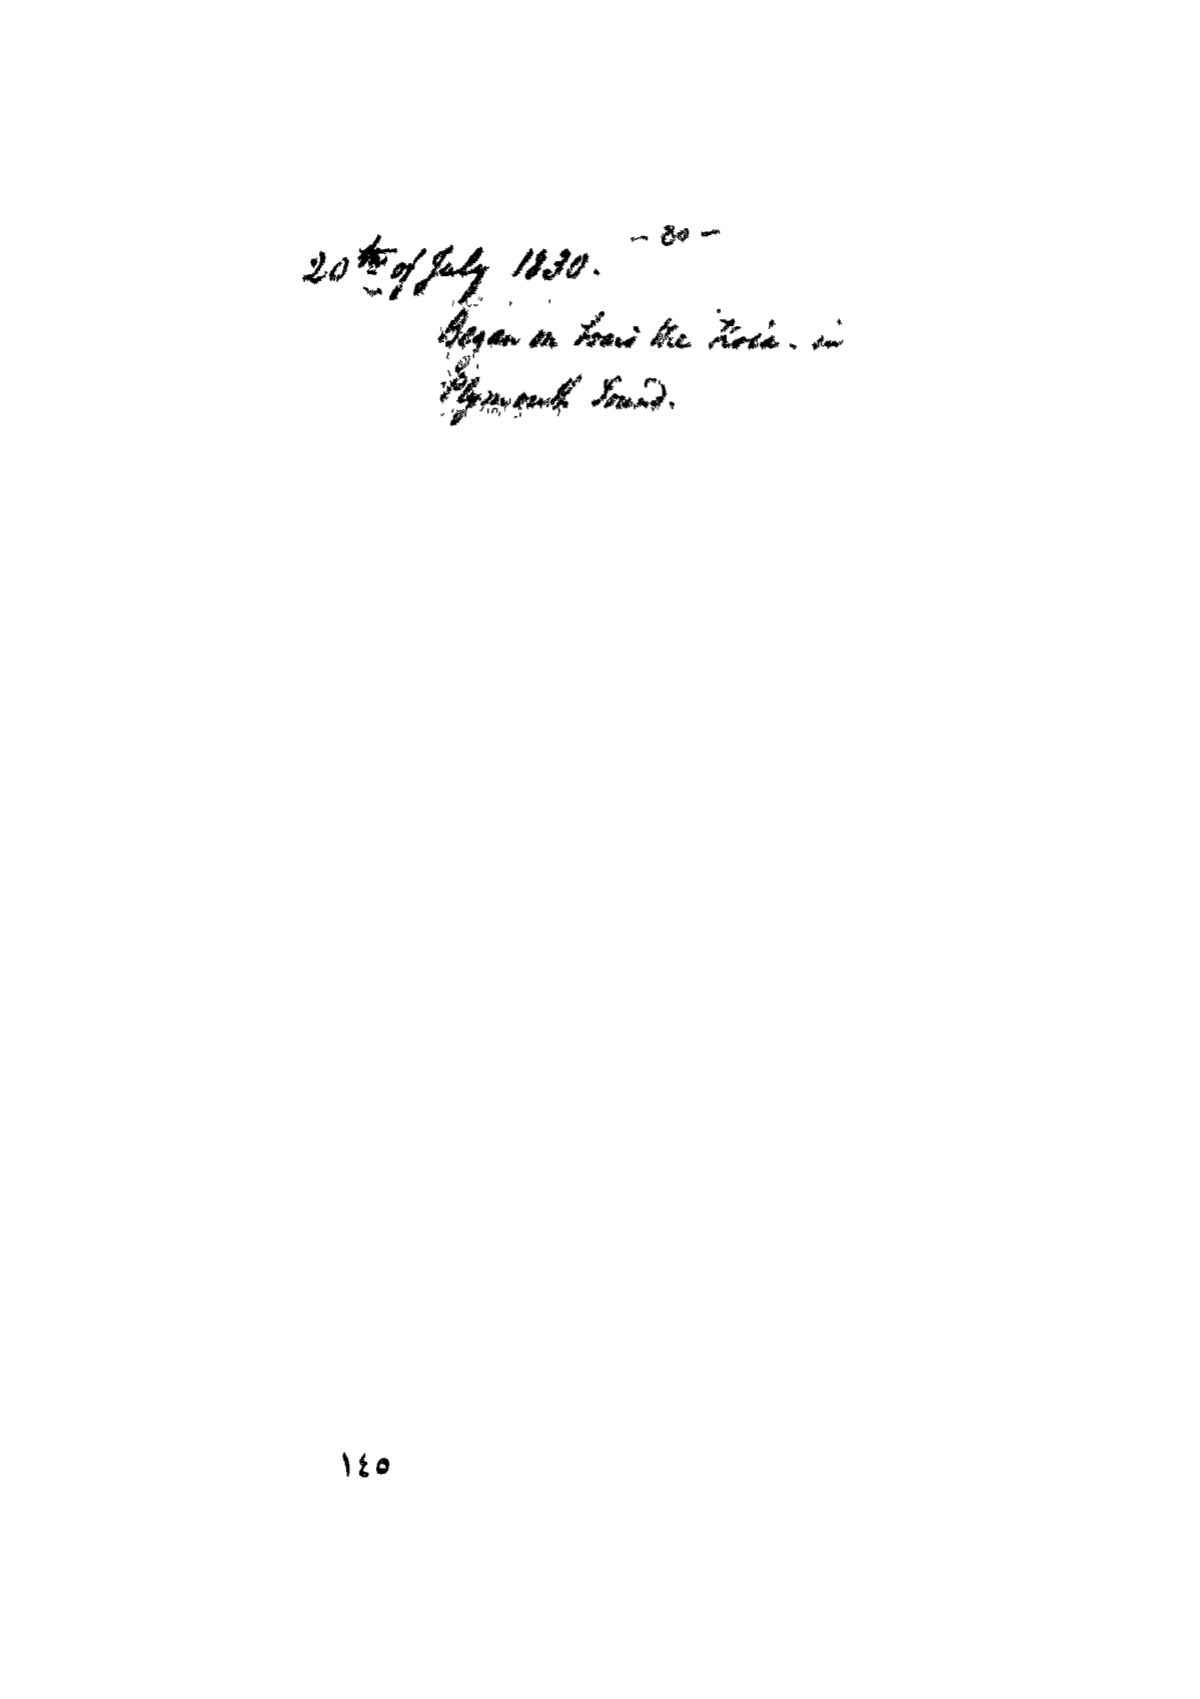 - 80 -
20th of July 1830.
Began on Louis the - in
Plymouth Sound.
١٤٥